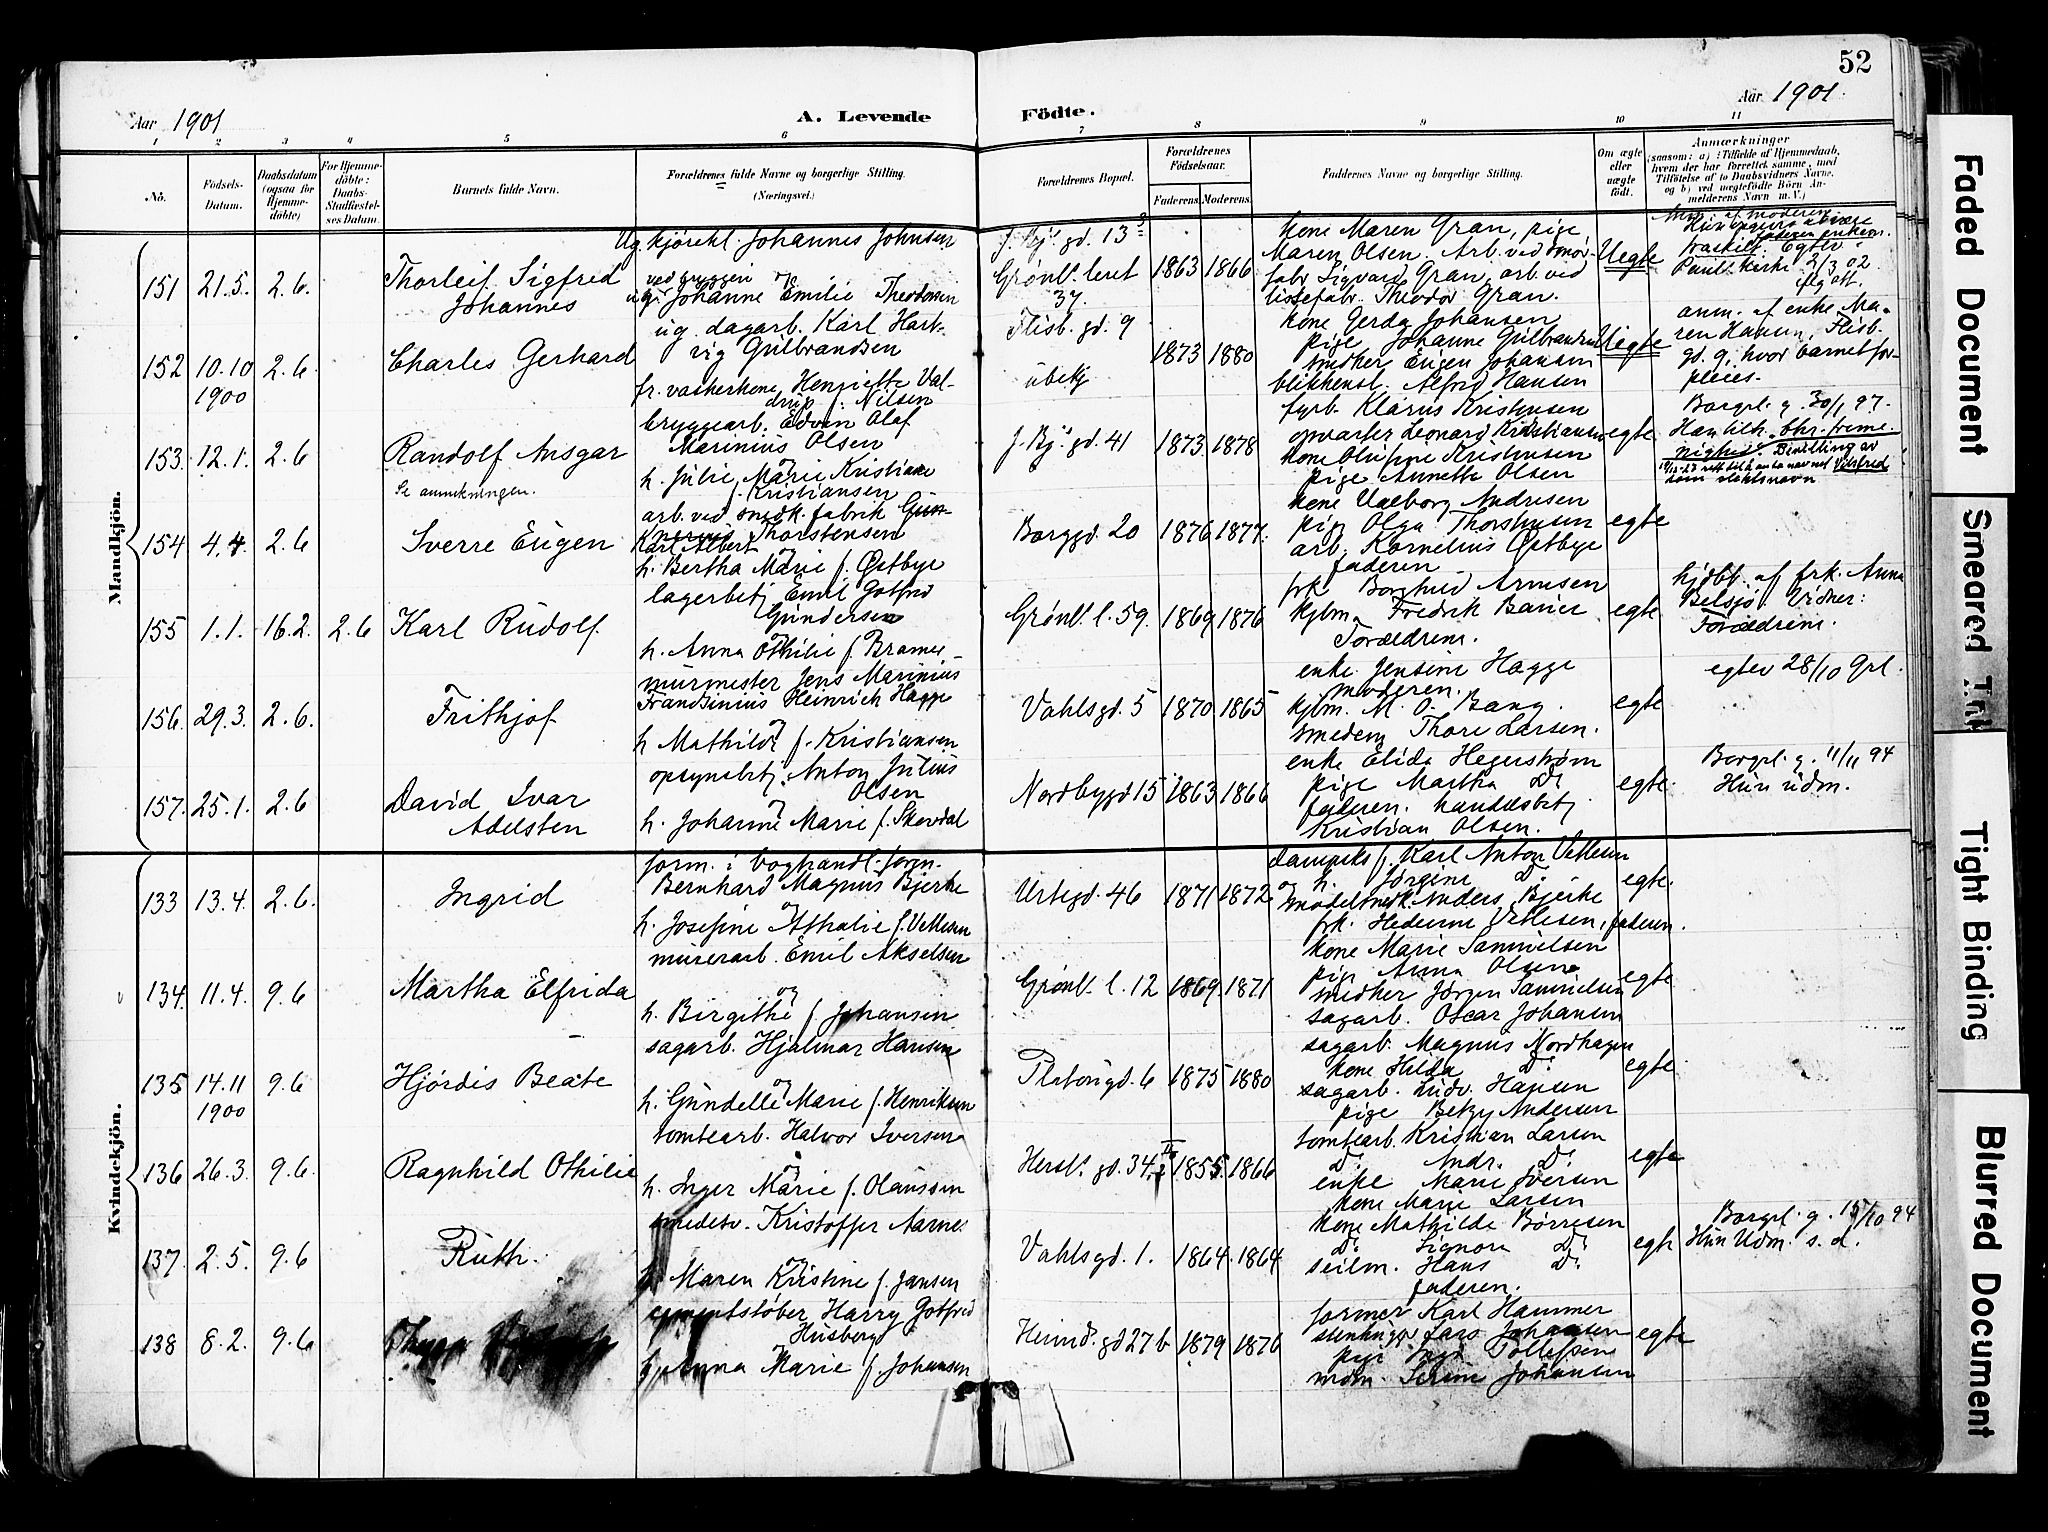 52
Aar 1901
A. Levende Födte.
Aar 1901
1 2 3 4 5 6 7 8 9 10 11
No.
Födsels-
Datum.
Daabsdatum
(ogsaa for
Hjemme-
döbte)
For Hjemme-
döbte:
Daabs-
Stadfæstel-
ses Datum.
Barnets fulde Navn.
Forældrenes fulde Navne og borgerlige Stilling.
(Næringsvei.)
Forældrenes Bopæl.
Forældrenes
Födselsaar.
Faderens. Moderens.
Faddernes Navne og borgerlige Stilling.
Om ægte
eller
uægte
födt.
Anmærkninger
(saasom: a) i Tilfælde af Hjemmedaab,
hvem der har forrettet samme, med
Tilföielse af to Daabsvidners Navne,
og b) ved uægtefödte Börn An-
melderens Navn m. V.)
Mandkjön.
151 21.5. 2.6.
Thorleif Sigfred
Johannes
Ug. kjørekl. Johannes Johnsen
ved bryggeri og
ug. Johanne Emilie Theodorsen
Grønl. leret
37.
1863 1866
kone Maren Gran, pige
Maren Olsen. Arb. ved smør-
fabr. Sigvard Gran, arb. ved
Theodor Gran.
Uegte
152 10.10
1900
2.6
Charles Gerhard
ug. dagarb. Karl Hart-
vig Gulbrandsen
fr. vaskerkone Henriette Val-
f. Nilsen
Flisb. gd. 9
ubekj
1873 1880
kone Gerda Johansen
pige Johanne Gulbrandsen
smdker Eugen Johansen
blikkensl. Alfred Hansen
Uegte
anm. af enke Ma-
ren Hansen, Flisb.
gd. 9, hvor barnet for-
pleies.
153. 12.1. 2.6
Randolf Ansgar
Se anmerkningen.
bryggearb. Edvin Olaf
Marinius Olsen
og
h. Julie Marie Kristiane
f. Kristiansen
gd. 41
1873 1878
fyrb. Klarus Kristensen
opvarter Leonard Kristiansen
kone Oline Kristensen
pige Annette Olsen
egte
Borgrl. g. 30/1 97.
154 4.4. 2.6
Sverre Eugen
arb. ved snedk. fabrik
Thorstensen
Karl Albert
h. Bertha Marie f. Østbye
Borggd. 20
1876 1877.
kone Valborg Andresen
pige Olga Thorstensen
arb. Kornelius Østbye
faderen
egte
155 1.1. 16.2. 2.6
Karl Rudolf.
lagerbetj. Emil Gotfred
Gundersen
og
h. Anna Othilie f. Bramer
Grønl. l. 59.
1869 1876
frk Borghild Arnesen
kjbm. Fredrik Baner
Forældrene.
egte
hjdbt. af frk. Anna
Belsjø. Vidner:
Forældrene.
156. 29.3. 2.6.
Frithjof
murmester Jens Marinius
Frandsinius Heinrich Hagge
og
h Mathilde f. Kristiansen
Vahlsgd. 5
1870 1865
enke Jensine Hagge
moderen.
kjbm. M. O. Bang.
smedem. Thore Larsen.
egte
egtev 28/10 9
157. 25.1. 2.6
David Ivar
Adelsten
opsynsbetj. Anton Julius
Olsen
og
h. Johanne Marie f. Skovdal
Nordbygd 15
1863 1866
enke Elida Hegerstrøm
pige Martha Do
faderen. handelsbetj.
Kristian Olsen.
egte.
Borgrl. g. 11/11 94
Hun udm.
Kvindekjön.
133 13.4. 2.6.
Ingrid
form. i boghandl. forr.
Bernhard Magnus Bjerke
og
h. Josefine Athalie f. Vetlesen
Urtegd. 46
1871 1872
Karl Anton Vetlesen
og h. Jørgine Do
modelsnedk. Anders Bjerke
frk. Hedevine Vetlesen, faderen.
egte.
134. 11.4. 9.6
Martha Elfrida
murerarb. Emil Akselsen
og
h. Birgithe f. Johansen
Grønl. l. 12
1869. 1871
kone Marie Samuelsen
pige Anna Olsen
snedker Jørgen Samuelsen
sagarb. Oscar Johansen
egte
135 14.11
1900
9.6
Hjørdis Beate
sagarb. Hjalmar Hansen
og
h. Gundelle Marie f. Henriksen
Platousgd. 6
1875 1880
sagarb. Magnus Nordhagen
kone Hilda Do
sagarb. Ludv. Hansen
pige Betzy Andersen
egte
136 26.3. 9.6.
Ragnhild Othilie
tomtearb. Halvor Iversen
og
h. Inger Marie f. Olaussen
Hersl. gd. 34
1855. 1866
tomtearb. Kristian Larsen
Do Andr. Do
enke Marie Iversen
kone Marie Larsen
egte
137. 2.5. 9.6
Ruth.
smedesv. Kristoffer Aarnes
og
h. Maren Kristine f. Jansen
Vahlsgd. 1.
1864. 1864
kone Mathilde Børresen
Do Signora Do
seilm. Hans Do
faderen.
egte
Borgrl. g. 15/10 94
Hun Udm. s. d.
138 8.2. 9.6
cementstøber Harry Gotfred
Husberg
h. Anna Marie f. Johansen
Heimd. gd 27 b
1879 1876
former Karl Hammer
stenhugger Lars Johansen
pige Inga Tollefsen
mdm. Serine Johansen
egte
Faded Document
Smeared Ink
Tight Binding
Blurred Document